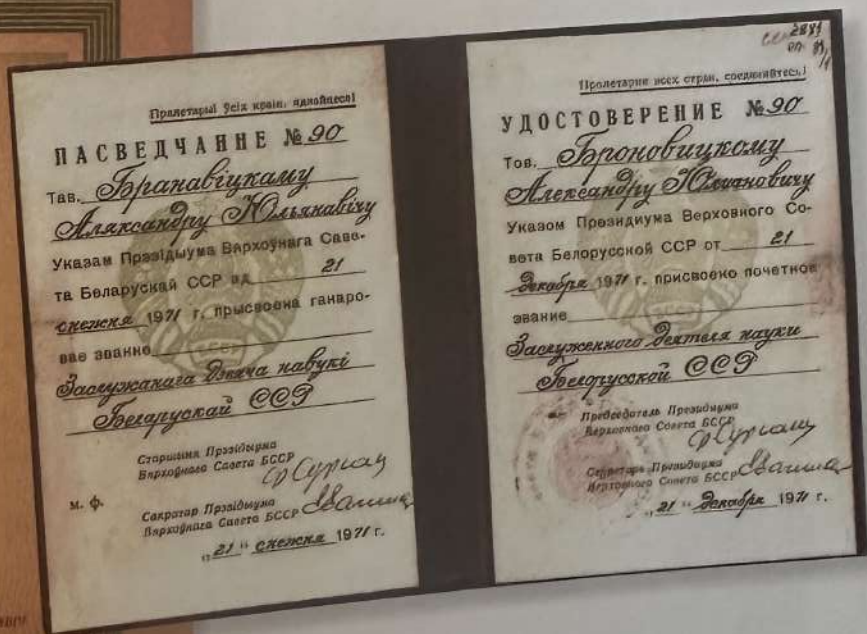 Пралетарыі ўсіх краін, яднайцеся!
ПАСВЕДЧАННЕ № 90
Тав. Бранавіцкаму
Аляксандру Юльянавічу
Указам Прэзідыума Вярхоўнага Саве-
та Беларускай ССР ад 21
снежня 1971 г. прысвоена ганаро-
вае званне
Заслужанага дзеяча навукі
Беларускай ССР
Старшыня Прэзідыума
Вярхоўнага Савета БССР
М. Ф.
Сакратар Прэзідыума
Вярхоўнага Савета БССР
„21“ снежня 1971 г.
2881
Пролетарии всех стран, соединяйтесь!
УДОСТОВЕРЕНИЕ № 90
Тов. Броновицкому
Александру Юлиановичу
Указом Президиума Верховного Со-
вета Белорусской ССР от 21
декабря 1971 г. присвоено почетное
звание
Заслуженного деятеля науки
Белорусской ССР
Председатель Президиума
Верховного Совета БССР
Секретарь Президиума
Верховного Совета БССР
„21“ декабря 1971 г.